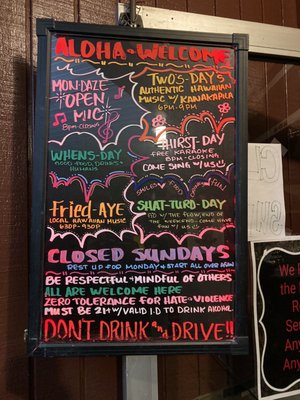 ALOHA • WELCOME
MON-DAZE
OPEN
MIC
8pm-Closing
TWO'S-DAY'S
AUTHENTIC HAWAIIAN
MUSIC w/ KANAKAPILA
6PM-9PM
WHENS-DAY
GOOD FOOD, DRINKS &
HUMANS
THIRST-DAY
FREE KARAOKE
8PM-CLOSING
COME SING w/ US
Fried-AYE
LOCAL HAWAIIAN MUSIC
630P-930P
SHAT-TURD-DAY
END OF THE
WEEKEND - COME HAVE
FUN w/ US
CLOSED SUNDAYS
REST UP FOR MONDAY & START ALL OVER AGAIN
BE RESPECTFUL & MINDFUL OF OTHERS
ALL ARE WELCOME HERE
ZERO TOLERANCE FOR HATE & VIOLENCE
MUST BE 21+ w/ VALID I.D TO DRINK ALKOHOL
DON'T DRINK and DRIVE!!
We
the